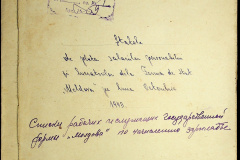 Statele
de plata salariilor personalului
și muncitorilor dela Ferma de Stat
"Moldova" pe luna Octombrie
1948.
Списки рабочих и служащих государственной
фермы "Молдова" по начислению зарплаты.